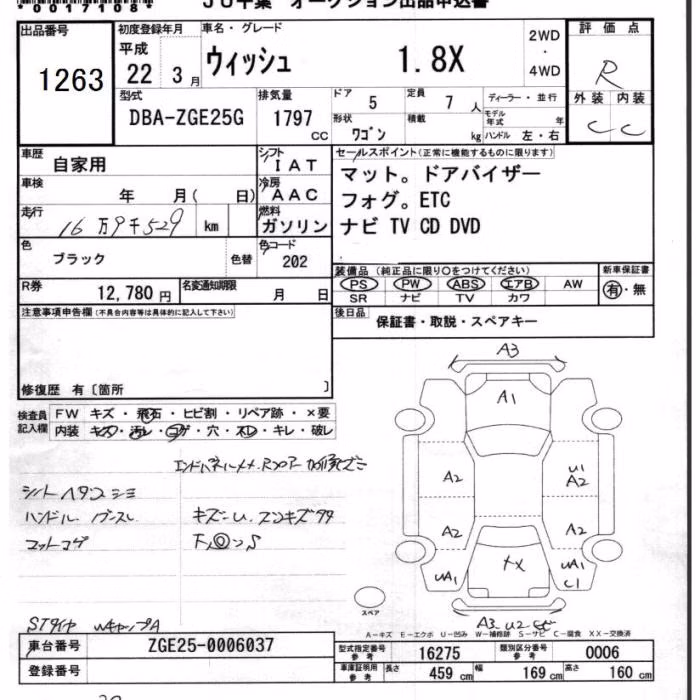 *00171108*
JU千葉 オークション出品申込書
出品番号 初度登録年月 車名・グレード 2WD・4WD 評価点
1263 平成22 3月 ウィッシュ 1.8X R
型式 排気量 ドア 5 定員 7人 ディーラー・並行 外装 内装
DBA-ZGE25G 1797cc 形状 ワゴン 積載 kg モデル年式 年 ハンドル 左・右 C C
車歴 自家用 シフト IAT セールスポイント(正常に機能するものに限ります)
車検 年 月( 日) 冷房 AAC マット。ドアバイザー
走行 16万9千529 km 燃料 ガソリン フォグ。ETC
ナビ TV CD DVD
色 ブラック 色替 色コード 202
装備品(純正品に限り○をつけてください) 新車保証書
R券 12,780円 名変通知期限 月 日 PS PW ABS エアB AW 有・無
SR ナビ TV カワ
注意事項申告欄(不具合内容等は具体的に記入して下さい) 後日品 保証書・取説・スペアキー
修復歴 有〔箇所 〕
検査員記入欄 FW キズ・飛石・ヒビ割・リペア跡・×要
内装 キズ・汚レ・コゲ・穴・スレ・キレ・破レ
シートヘタリ
ハンドル
マットコゲ
キズ-U
STタイヤ WキャップA
A3
A1
A2 U1 A2
A2 A2
UA1 UA1 C1
スペア
A3 U2
A-キズ E-エクボ U-凹み W-補修跡 S-サビ C-腐食 XX-交換済
車台番号 ZGE25-0006037 型式指定番号参考 16275 類別区分番号参考 0006
登録番号 車庫証明用参考 長さ 459cm 幅 169cm 高さ 160cm